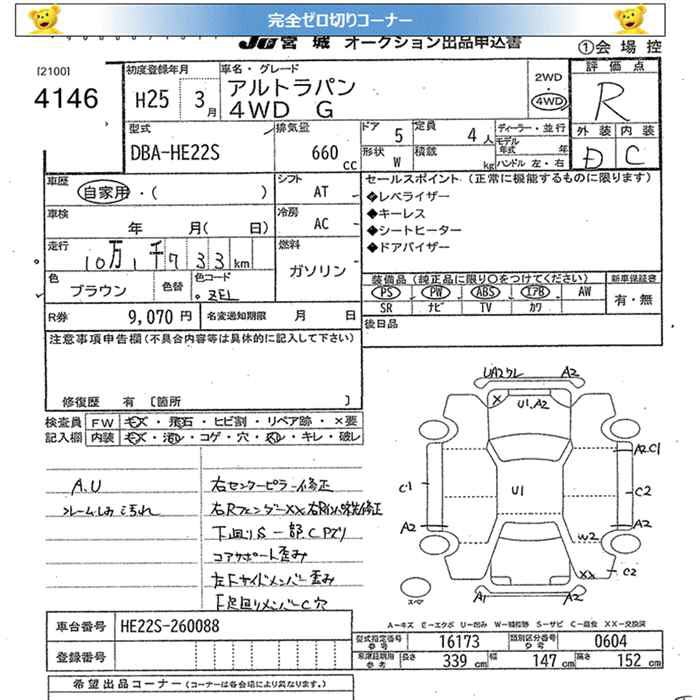 完全ゼロ切りコーナー
JU宮城 オークション出品申込書
①会場控
[2100]
4146
初度登録年月
H25 3月
車名・グレード
アルトラパン
4WD G
2WD
・
4WD
評価点
R
型式
DBA-HE22S
排気量
660 cc
ドア 5
定員 4人
形状 W
積載 kg
ディーラー・並行
モデル年式 年
ハンドル 左・右
外装 内装
D C
車歴
自家用・( )
シフト
AT
セールスポイント (正常に機能するものに限ります)
◆レベライザー
◆キーレス
◆シートヒーター
◆ドアバイザー
車検
年 月( 日)
冷房
AC
走行
10万1千733km
燃料
ガソリン
色
ブラウン
色替
色コード
ZEL
装備品 (純正品に限り○をつけてください)
PS PW ABS エアB AW
SR ナビ TV カワ
新車保証書
有・無
R券 9,070円
名変通知期限 月 日
後日品
注意事項申告欄(不具合内容等は具体的に記入して下さい)
修復歴 有 [箇所 ]
検査員 FW キズ・飛石・ヒビ割・リペア跡・×要
記入欄 内装 キズ・汚れ・コゲ・穴・

・キレ・破レ
A.U
フレームしみ汚れ
右センターピラー修正
右Rフェンダー××
下回りS 一部C
コアサポート歪み
左Fサイドメンバー歪み
F足回りメンバーC穴
UA2ワレ A2
× U1,A2
A2 C1
C1 U1 C2
A2 A2
W2
×× C2
A1 A2
スペア
A－キズ E－エクボ U－凹み W－補修跡 S－サビ C－腐食 XX－交換済
車台番号 HE22S-260088
登録番号
型式指定番号 参考 16173
類別区分番号 参考 0604
長さ 339 cm 幅 147 cm 高さ 152 cm
希望出品コーナー (コーナーは各会場により異なります。)